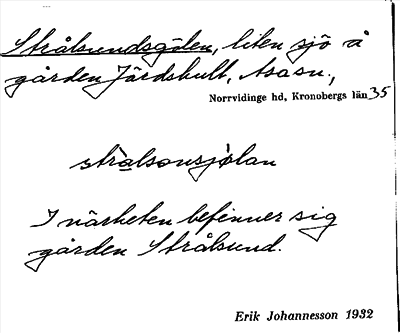 Strålsundsgölen, liten sjö å
gården Järdshult, Asasn.,
Norrvidinge hd, Kronobergs län 35
strålsonsjølan
I närheten befinner sig
gården Strålsund.
Erik Johannesson 1932